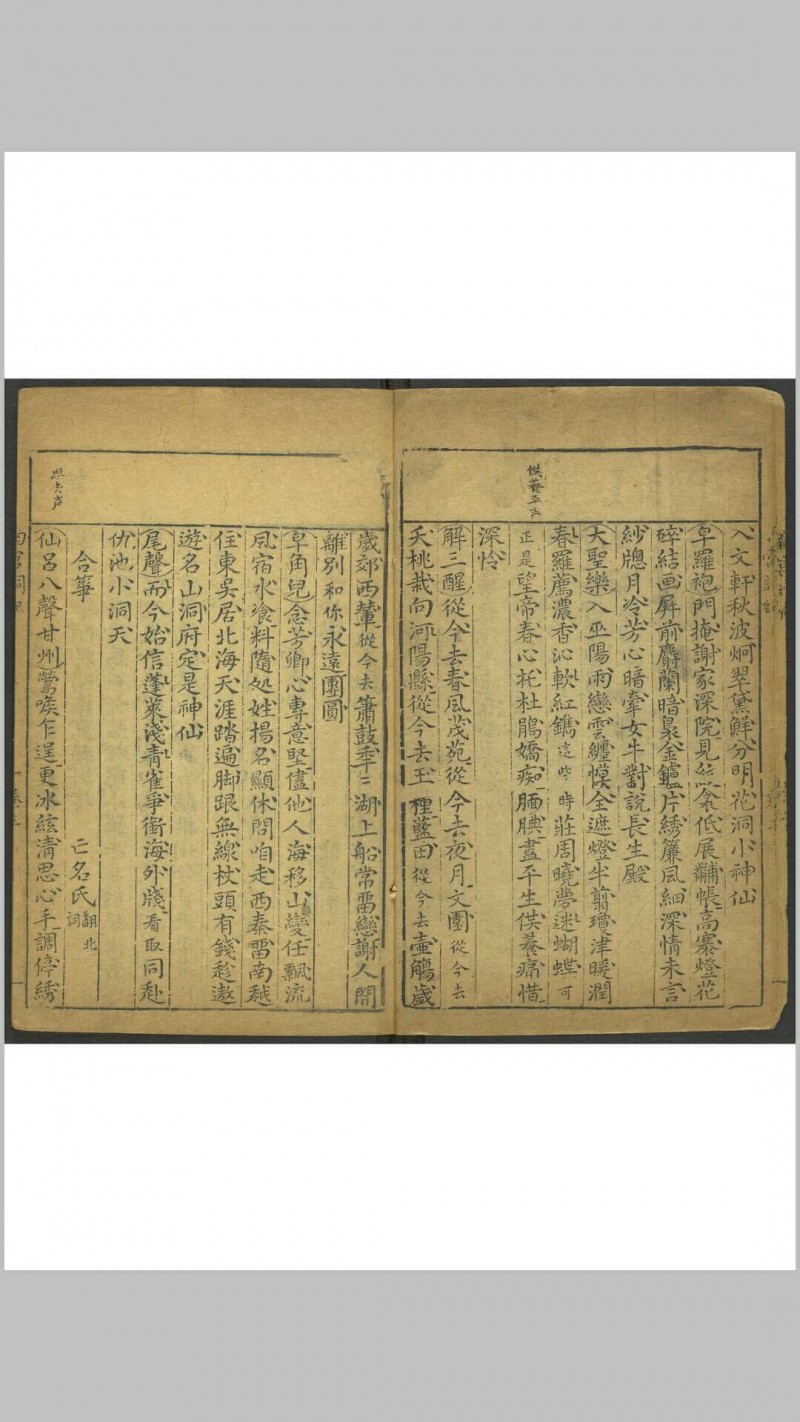 供養平声
八文軒秋波炯翠黛鮮分明花洞小神仙
皁羅袍門掩謝家深院見衾低展黼帳高褰燈花
碎結画屏前麝蘭暗裊金鑪片綉簾風細深情未言
紗牕月冷芳心暗牽女牛對說長生殿
大聖樂入巫陽雨戀雲纏幙全遮燈半翦瓊津暖潤
春羅薦濃香沁軟紅鐫這些時莊周曉夢迷蝴蝶可
正是望帝春心托杜鵑嬌痴腼腆盡平生供養痛惜
深怜
解三醒從今去春風茂苑從今去夜月文園從今去
夭桃栽向河陽縣從今去玉種藍田從今去壺觴歲
思去声
歲郊西輦從今去簫鼓季〻湖上船常畱戀謝人間
離別和你永遠團圓
皁角兒念芳卿心專意堅儘他人海移山變任飄流
風宿水飡料隨処姓揚名顯休問咱走西秦畱南越
住東吳居北海天涯踏遍脚跟無線杖頭有錢趁遨
遊名山洞府定是神仙
尾聲而今始信蓬萊淺青雀爭銜海外牋看取同赴
仇池小洞天
合筝
亡名氏翻北詞
仙呂八聲甘州鶯喉乍逞更冰絃清思心手調停綉